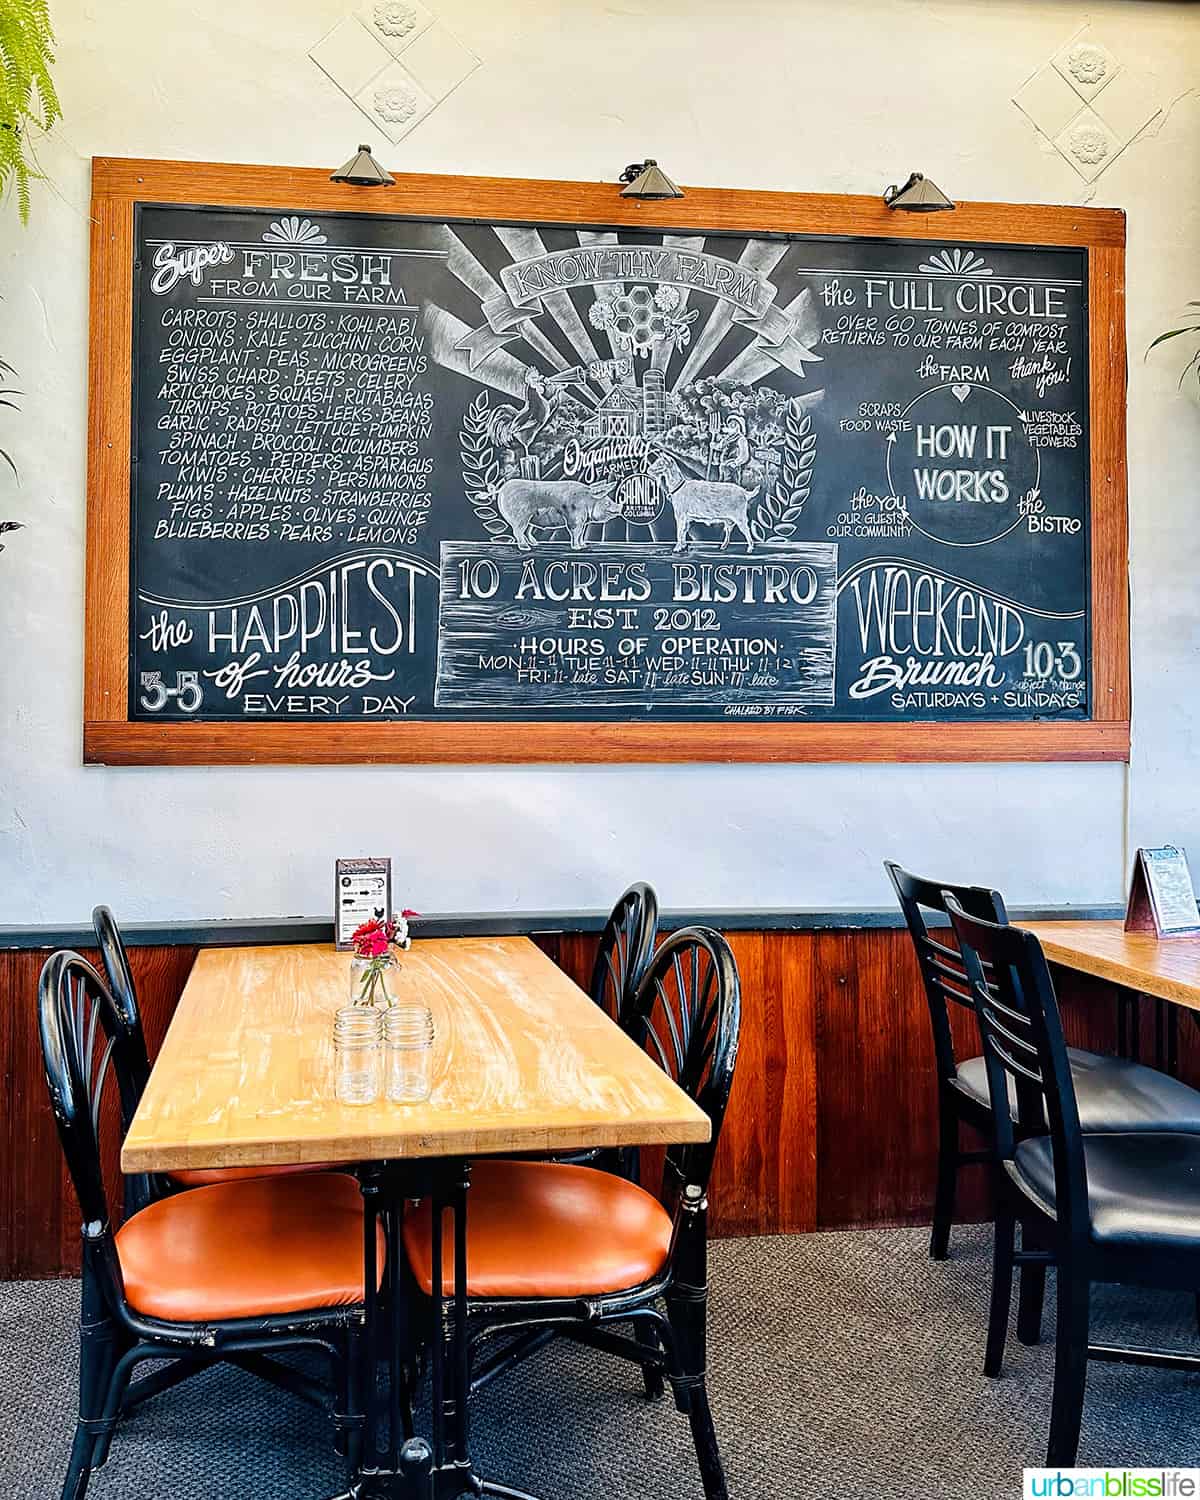 Super FRESH
FROM OUR FARM
CARROTS · SHALLOTS · KOHLRABI
ONIONS · KALE · ZUCCHINI · CORN
EGGPLANT · PEAS · MICROGREENS
SWISS CHARD · BEETS · CELERY
ARTICHOKES · SQUASH · RUTABAGAS
TURNIPS · POTATOES · LEEKS · BEANS
GARLIC · RADISH · LETTUCE · PUMPKIN
SPINACH · BROCCOLI · CUCUMBERS
TOMATOES · PEPPERS · ASPARAGUS
KIWIS · CHERRIES · PERSIMMONS
PLUMS · HAZELNUTS · STRAWBERRIES
FIGS · APPLES · OLIVES · QUINCE
BLUEBERRIES · PEARS · LEMONS
the HAPPIEST
of hours
3-5
EVERY DAY
KNOW THY FARM
Organically
FARMED
SAANICH
BRITISH
COLUMBIA
10 ACRES BISTRO
EST. 2012
· HOURS OF OPERATION ·
MON · 11-11 TUE · 11-11 WED · 11-11 THU · 11-12
FRI · 11-late SAT · 11-late SUN · 11-late
CHALKED BY FISK
the FULL CIRCLE
OVER 60 TONNES OF COMPOST
RETURNS TO OUR FARM EACH YEAR
thank you!
the FARM
LIVESTOCK
VEGETABLES
FLOWERS
the BISTRO
the YOU
OUR GUESTS
OUR COMMUNITY
SCRAPS
FOOD WASTE
HOW IT
WORKS
WEEKEND
Brunch 10-3
SATURDAYS + SUNDAYS
urbanblisslife